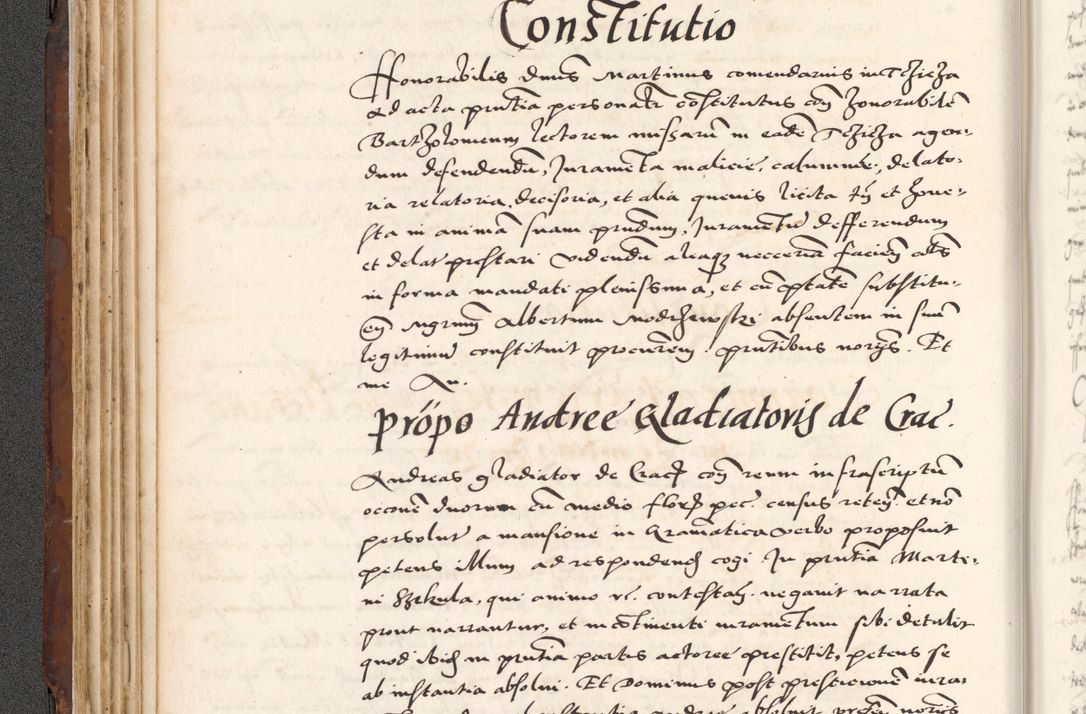 Constitutio
Honorabilis dnus Martinus comendarius in Tczicza
ad acta pruntia personalr constitutus coñ honorabilẽ
Bartholomeum lectorem missarũ in eadẽ Tczicza agen-
dum defendendũ, Juramẽta malicie, calumnie, delato-
ria relatoria, decisoria, et alia quevis licita tñ et hone-
sta in animã suam prndum, Juramẽtũ defferendum
et delat prestari videndũ aliaqz necceria faciẽn
in forma mandati plenissima, et cũ ptate substitu-
eñ mgrum Albertum Modrzewsky absentem in suũ
legitimũ constituit procurem. pruntibus noriis. Et
me An.
Propo Andree Gladiatoris de Crac.
Andreas gladiator de Crac coñ reum infrascriptũ
occone duorum cũ medio flor pec. census reteñ. et nõ
persolut a mansione in Gramatica verbo proposuit
petens illum ad respondend cogi In pruntia Marti-
ni Szkula, qui animo lt. contestañ. negavit narrata
prout narrantur, et in cõtinenti iuramẽtum sibi detulit
quod ibid in pruntia partis actoree prestitit, petens se
ab instantia absolui. Et Dominus post prestitionẽ iura-